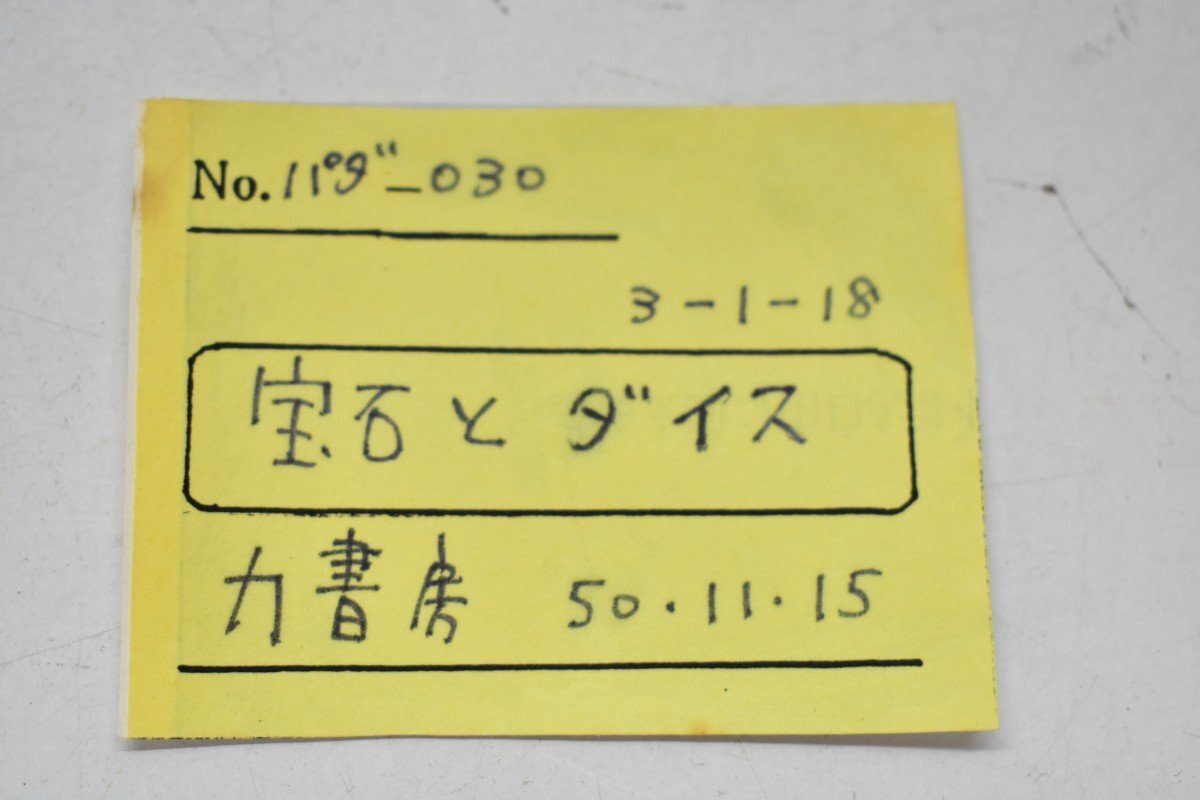 No.パダ-030
3-1-18
宝石とダイス
力書房 50.11.15